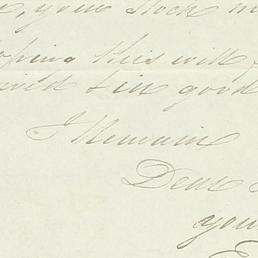 your Stock
oping this will
& in good
I Remain
Dear
you